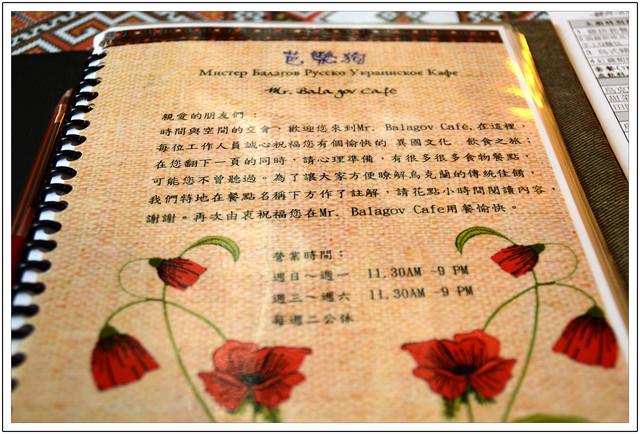 芭樂狗
Мистер Балагов Русско Украинское Кафе
Mr. Balagov Café
親愛的朋友們：
時間與空間的交會，歡迎您來到Mr. Balagov Cafe,在這裡，
每位工作人員誠心祝福您有個愉快的 異國文化 飲食之旅；
在您翻下一頁的同時，請心理準備，有很多很多食物餐點，
可能您不曾聽過。為了讓大家方便瞭解烏克蘭的傳統佳餚，
我們特地在餐點名稱下方作了註解，請花點小時間閱讀內容，
謝謝。再次由衷祝福您在Mr. Balagov Cafe用餐愉快。
營業時間：
週日～週一 11.30AM -9 PM
週三～週六 11.30AM -9 PM
每週二公休